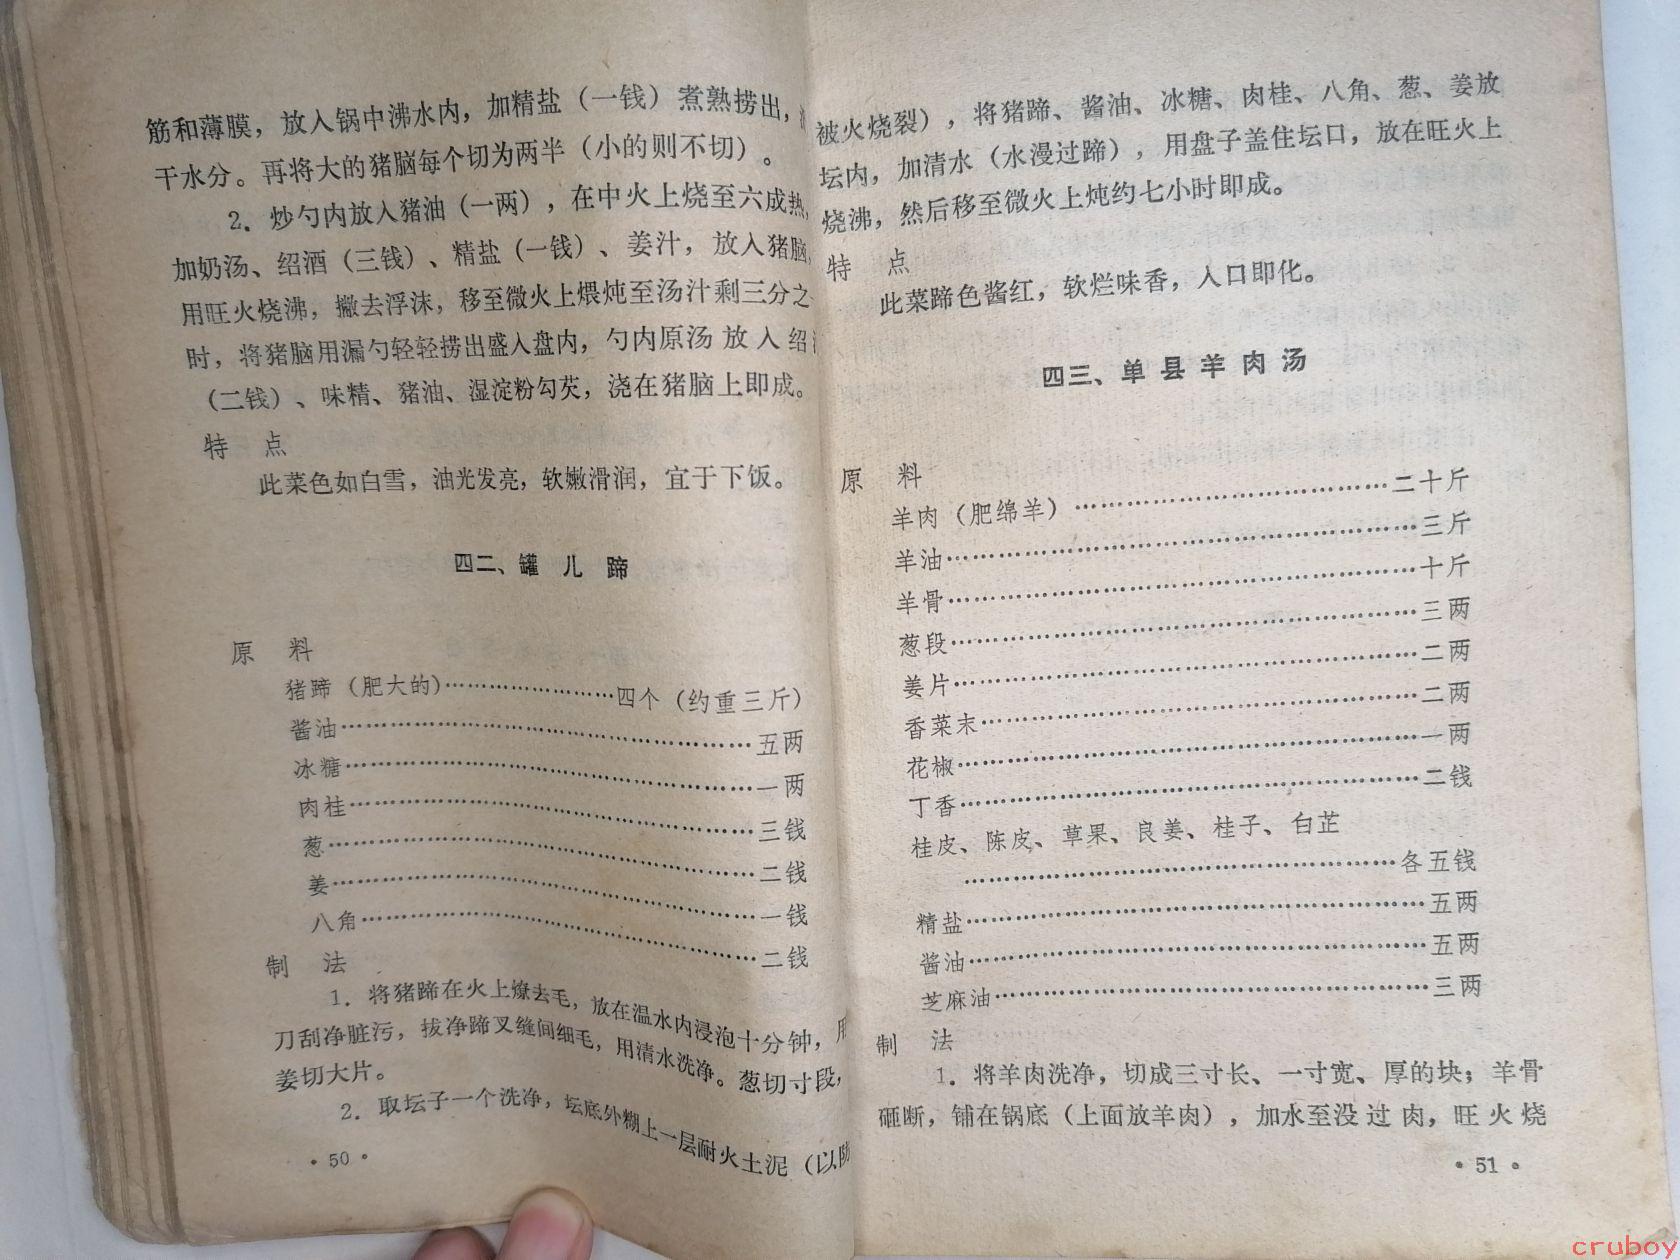 筋和薄膜，放入锅中沸水内，加精盐（一钱）煮熟捞出，
干水分。再将大的猪脑每个切为两半（小的则不切）。
2．炒勺内放入猪油（一两），在中火上烧至六成热，
加奶汤、绍酒（三钱）、精盐（一钱）、姜汁，放入猪脑，
用旺火烧沸，撇去浮沫，移至微火上煨炖至汤汁剩三分之
时，将猪脑用漏勺轻轻捞出盛入盘内，勺内原汤放入绍
（二钱）、味精、猪油、湿淀粉勾芡，浇在猪脑上即成。
特 点
此菜色如白雪，油光发亮，软嫩滑润，宜于下饭。
四二、罐儿蹄
原 料
猪蹄（肥大的）…………………四个（约重三斤）
酱油…………………………………………五两
冰糖…………………………………………一两
肉桂…………………………………………三钱
葱……………………………………………二钱
姜……………………………………………一钱
八角…………………………………………二钱
制 法
1．将猪蹄在火上燎去毛，放在温水内浸泡十分钟，用
刀刮净脏污，拔净蹄叉缝间细毛，用清水洗净。葱切寸段，
姜切大片。
2．取坛子一个洗净，坛底外糊上一层耐火土泥（以防
·50·
被火烧裂），将猪蹄、酱油、冰糖、肉桂、八角、葱、姜放
坛内，加清水（水漫过蹄），用盘子盖住坛口，放在旺火上
烧沸，然后移至微火上炖约七小时即成。
特 点
此菜蹄色酱红，软烂味香，入口即化。
四三、单县羊肉汤
原 料
羊肉（肥绵羊）……………………………二十斤
羊油…………………………………………三斤
羊骨…………………………………………十斤
葱段…………………………………………三两
姜片…………………………………………二两
香菜末………………………………………二两
花椒…………………………………………一两
丁香…………………………………………二钱
桂皮、陈皮、草果、良姜、桂子、白芷
…………………………………………各五钱
精盐…………………………………………五两
酱油…………………………………………五两
芝麻油………………………………………三两
制 法
1．将羊肉洗净，切成三寸长、一寸宽、厚的块；羊骨
砸断，铺在锅底（上面放羊肉），加水至没过肉，旺火烧
·51·
cruboy